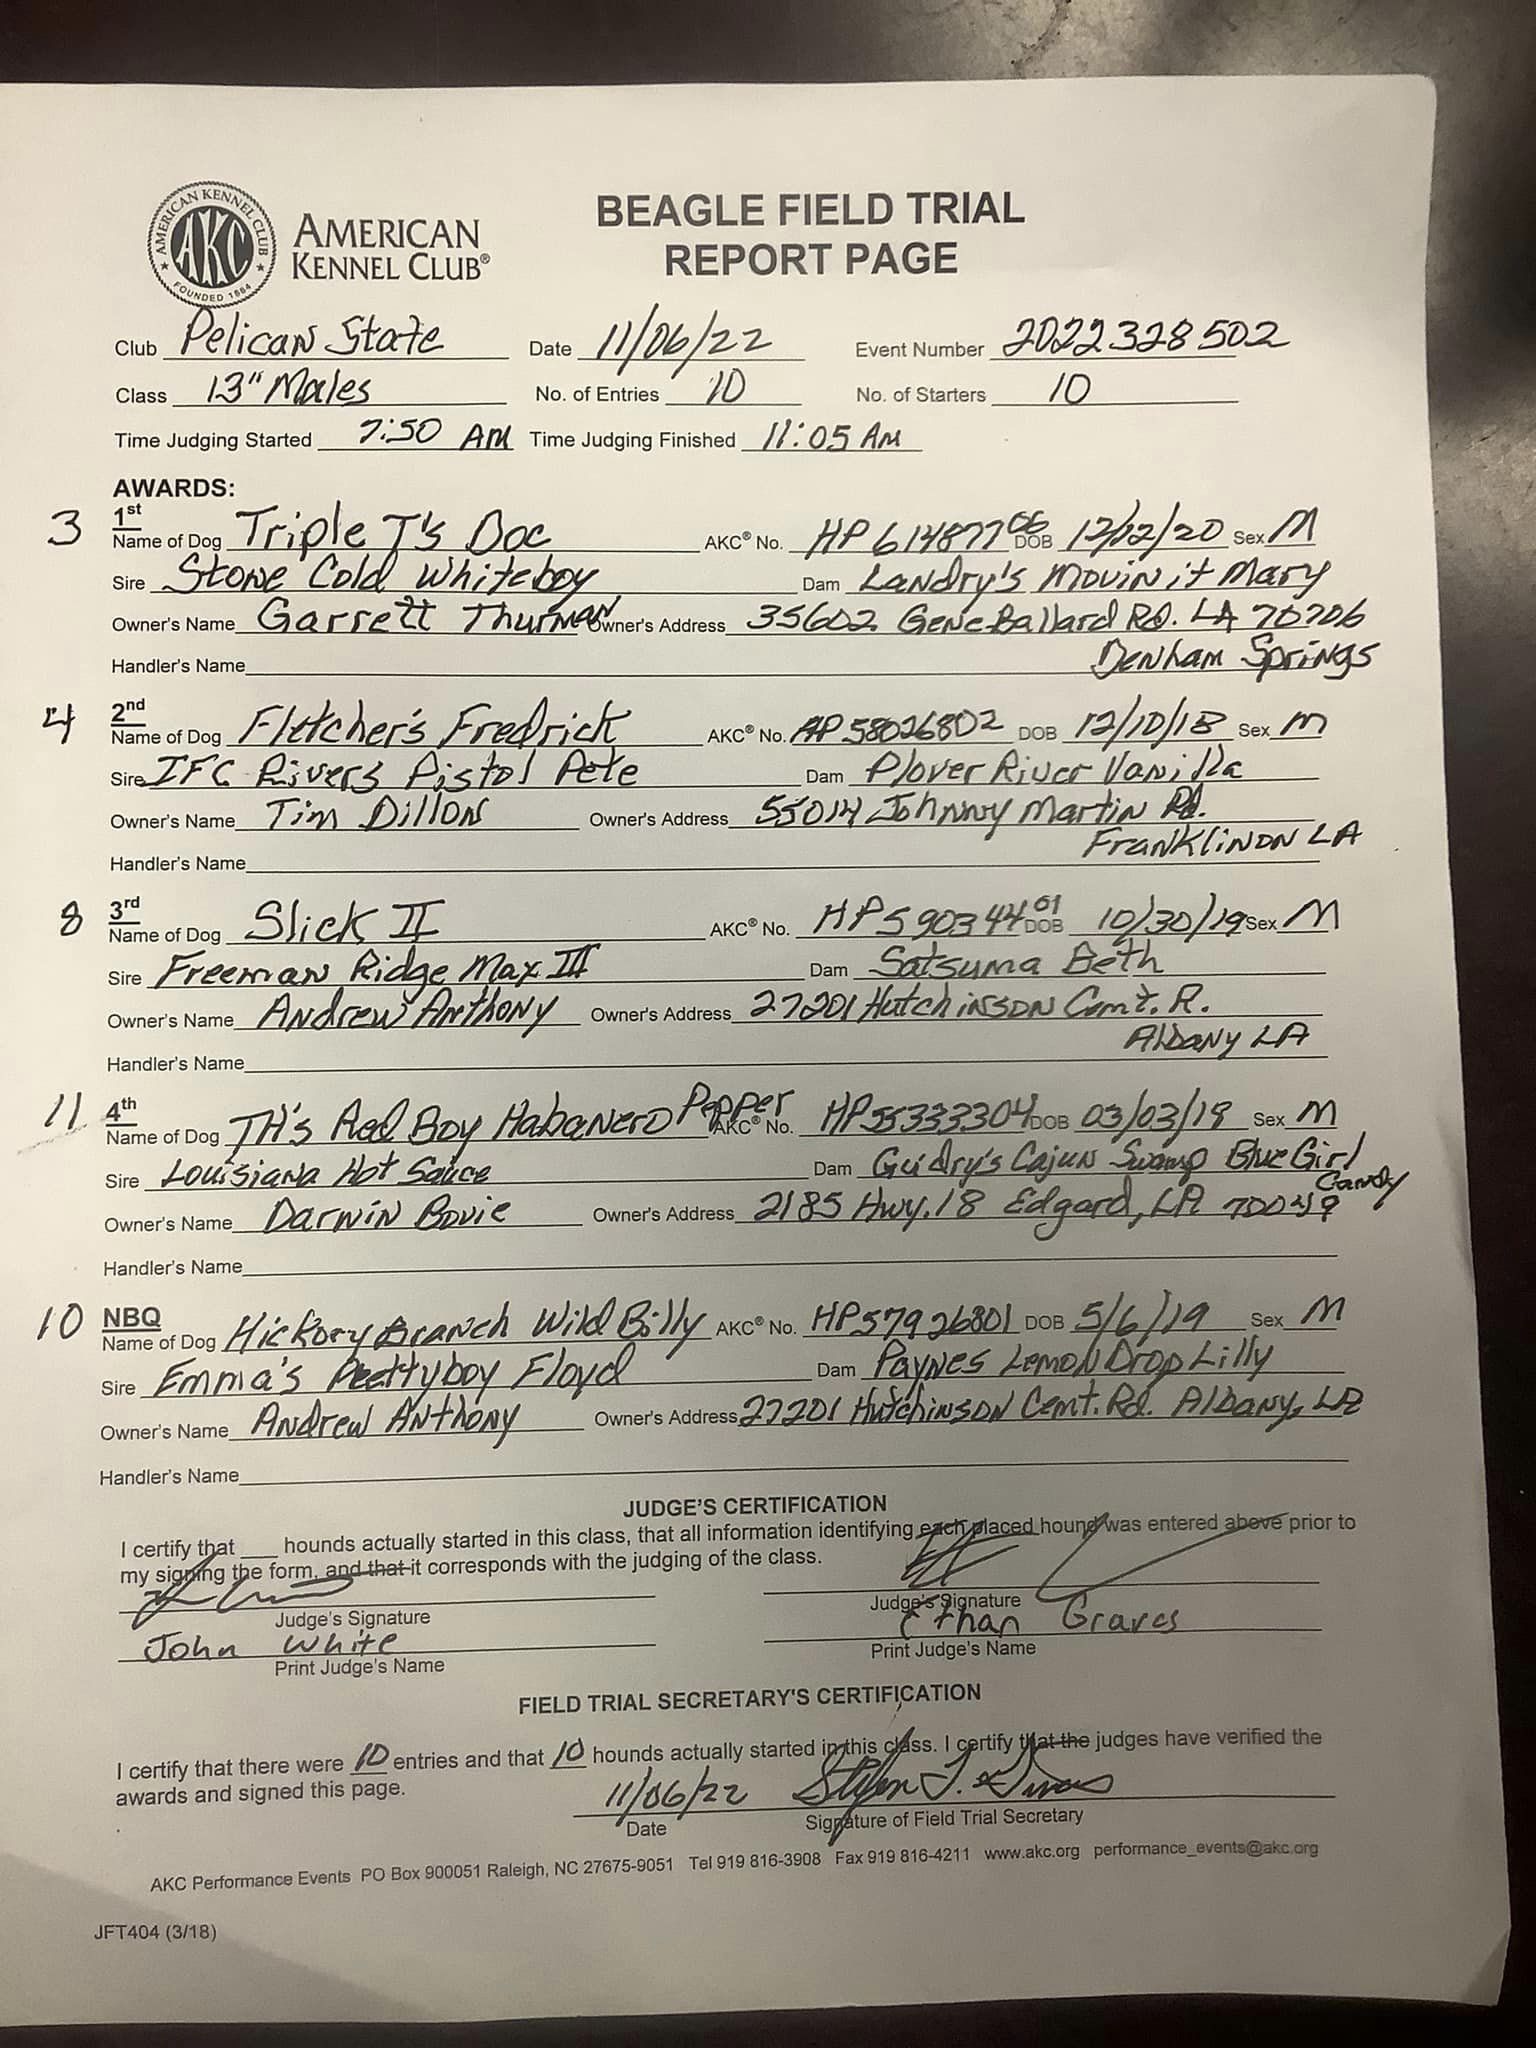 AMERICAN KENNEL CLUB
AKC
FOUNDED 1884
AMERICAN
KENNEL CLUB®
BEAGLE FIELD TRIAL
REPORT PAGE
Club Pelican State Date 11/06/22 Event Number 2022328502
Class 13" Males No. of Entries 10 No. of Starters 10
Time Judging Started 7:50 AM Time Judging Finished 11:05 AM
AWARDS:
3 1st
Name of Dog Triple T's Doc AKC® No. HP61487706 DOB 12/12/20 Sex M
Sire Stone Cold Whiteboy Dam Landry's Movin it Mary
Owner's Name Garrett Thurman Owner's Address 35602 Gene Ballard Rd. LA 70706
Handler's Name Denham Springs
4 2nd
Name of Dog Fletcher's Fredrick AKC® No. HP58026802 DOB 12/10/18 Sex M
Sire IFC Rivers Pistol Pete Dam Plover River Vanilla
Owner's Name Tim Dillon Owner's Address 55014 Johnny Martin Rd.
Handler's Name Franklinon LA
8 3rd
Name of Dog Slick II AKC® No. HP59034401 DOB 10/30/19 Sex M
Sire Freeman Ridge Max III Dam Satsuma Beth
Owner's Name Andrew Anthony Owner's Address 27201 Hutchinson Cemt. R.
Handler's Name Albany LA
11 4th
Name of Dog TH's Red Boy Habanero Pepper AKC® No. HP55333304 DOB 03/03/18 Sex M
Sire Louisiana Hot Sauce Dam Guidry's Cajun Swamp Blue Girl Candy
Owner's Name Darwin Bovie Owner's Address 2185 Hwy. 18 Edgard, LA 70049
Handler's Name
10 NBQ
Name of Dog Hickory Branch Wild Billy AKC® No. HP57926801 DOB 5/6/19 Sex M
Sire Emma's Prettyboy Floyd Dam Paynes Lemon Drop Lilly
Owner's Name Andrew Anthony Owner's Address 27201 Hutchinson Cemt. Rd. Albany, LA
Handler's Name
JUDGE'S CERTIFICATION
I certify that ___ hounds actually started in this class, that all information identifying each placed hound was entered above prior to
my signing the form, and that it corresponds with the judging of the class.
Judge's Signature Judge's Signature
John White Ethan Graves
Print Judge's Name Print Judge's Name
FIELD TRIAL SECRETARY'S CERTIFICATION
I certify that there were 10 entries and that 10 hounds actually started in this class. I certify that the judges have verified the
awards and signed this page.
11/06/22
Date Signature of Field Trial Secretary
AKC Performance Events PO Box 900051 Raleigh, NC 27675-9051 Tel 919 816-3908 Fax 919 816-4211 www.akc.org performance_events@akc.org
JFT404 (3/18)